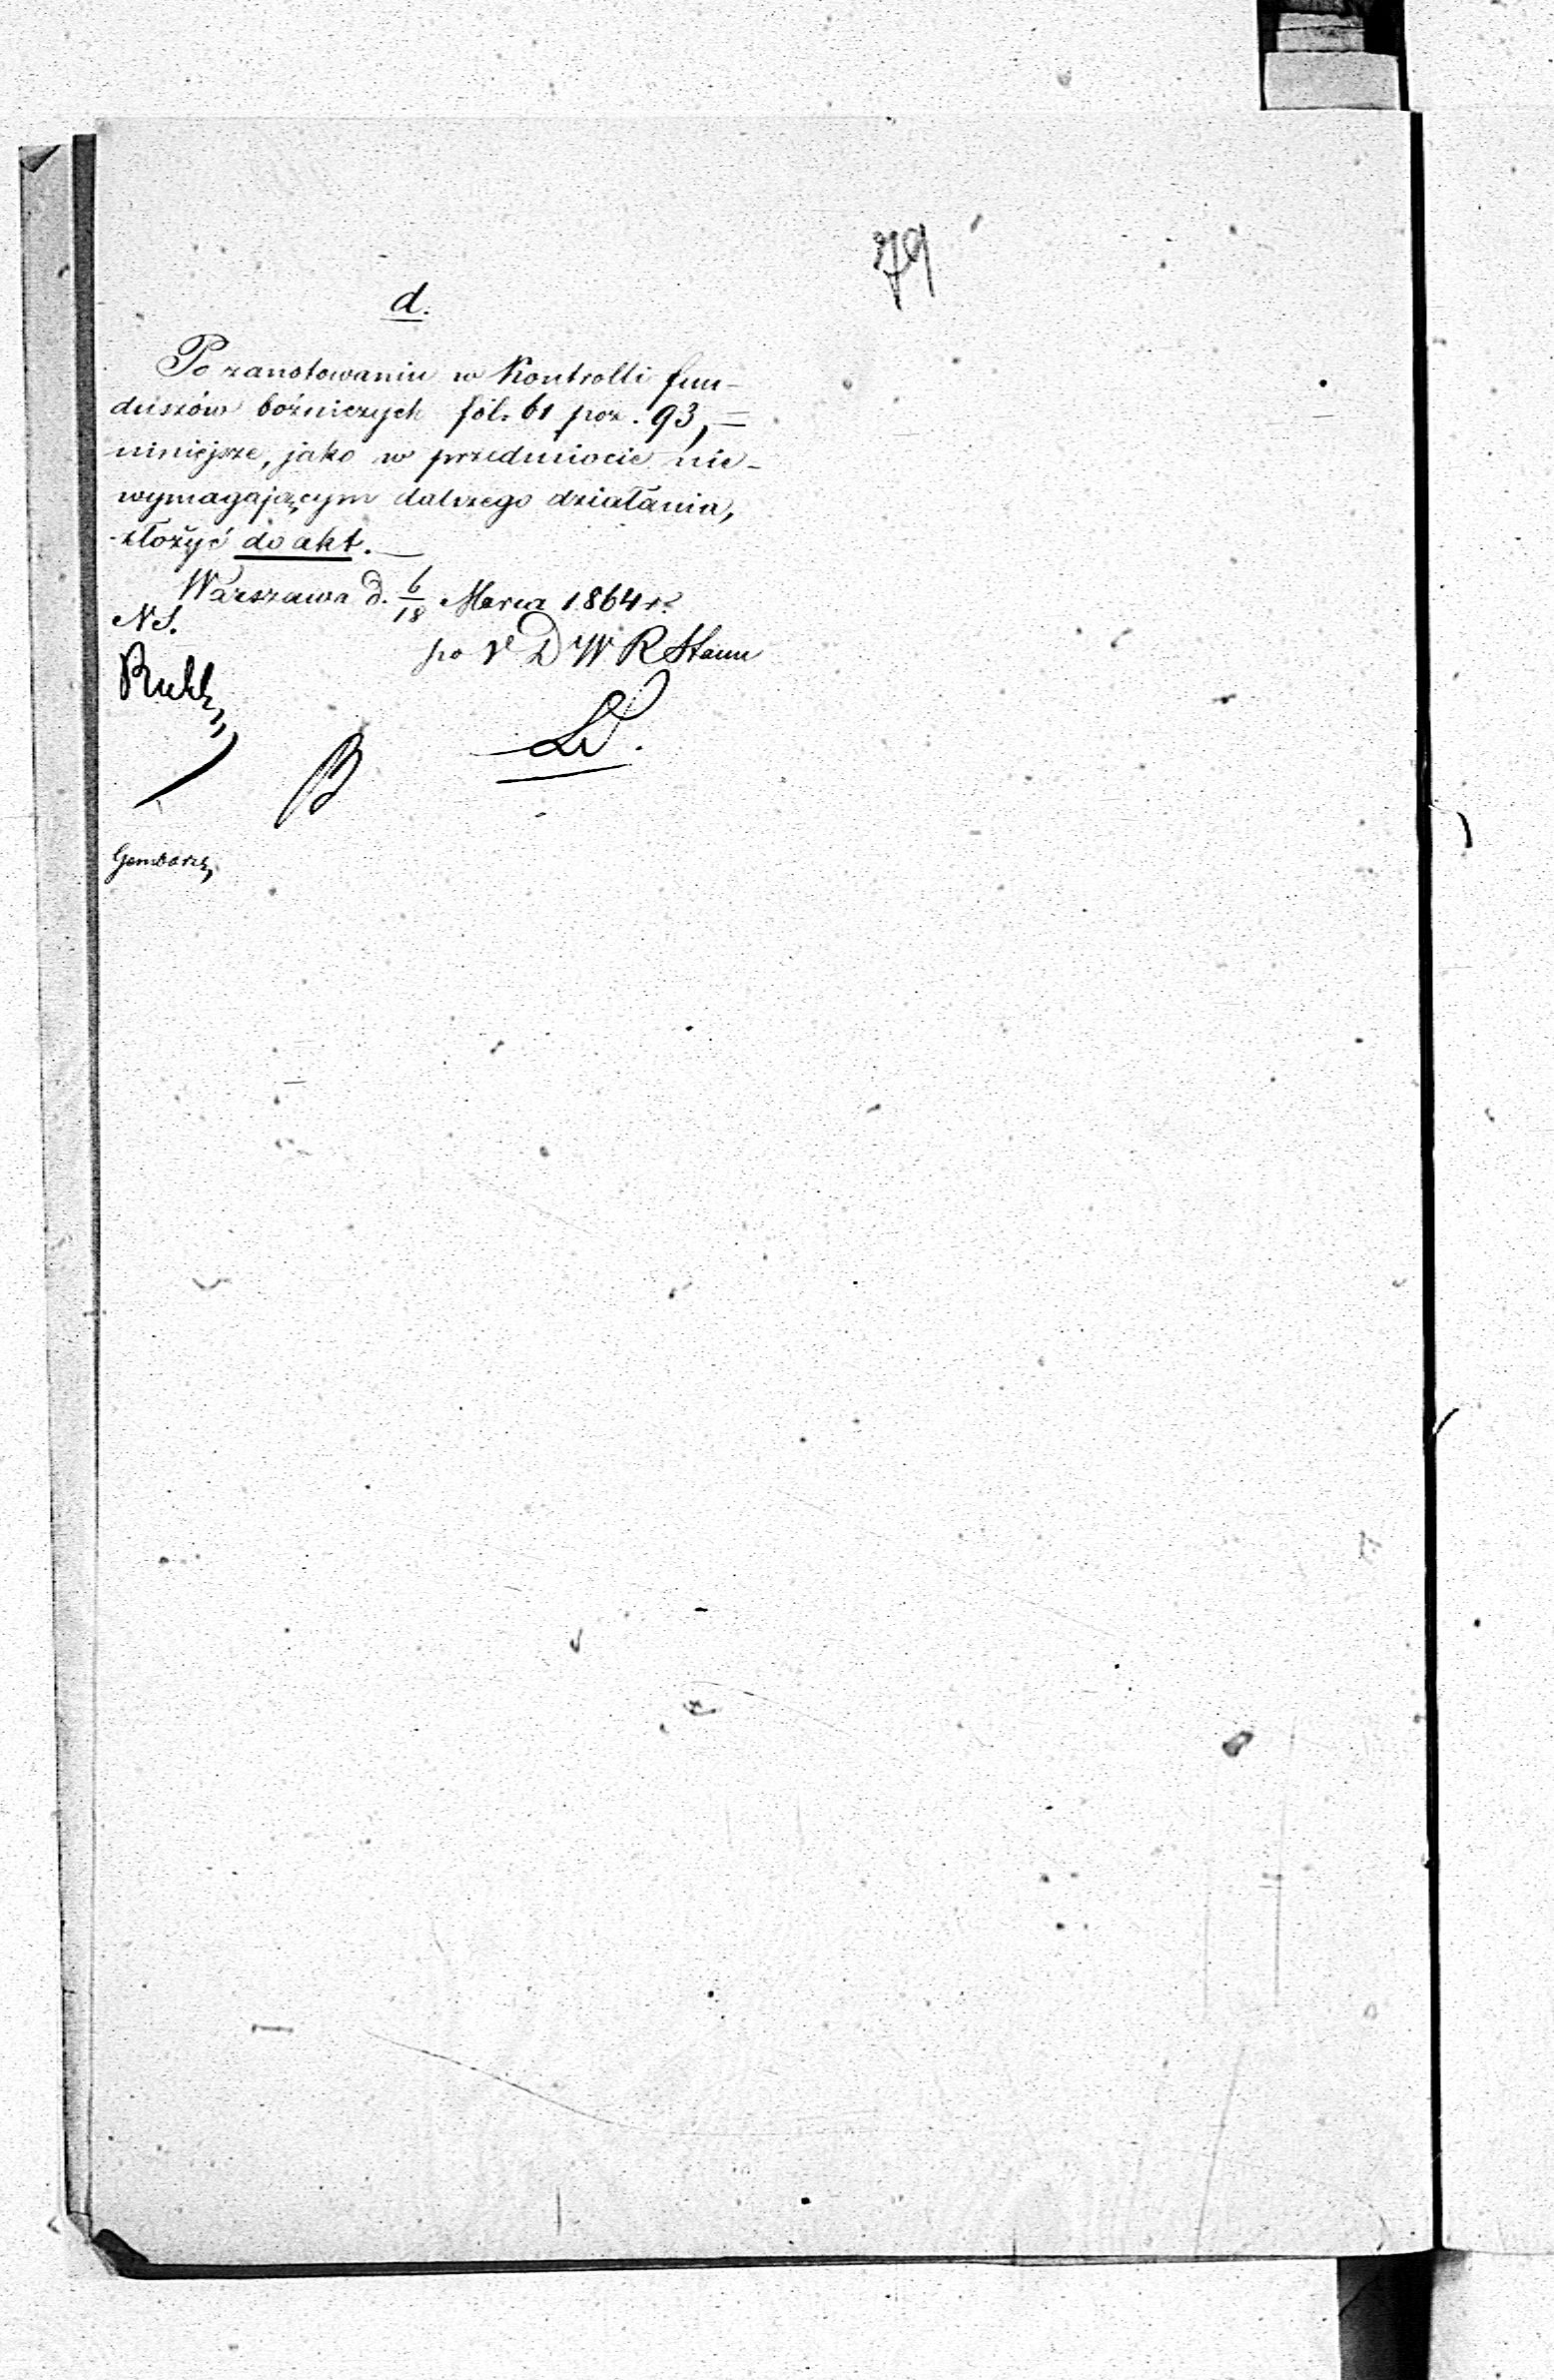 79
d.
Po zanotowaniu w Kontrolli fun-
duszów bóżniczych fol. 61 poz. 93, =
niniejsze, jako w przedmiocie nie-
wymagającym dalszego działania,
złożyć do akt. —
Warszawa d. 6/18 Marca 1864 r.
NS.
po V D W R Stanu
B